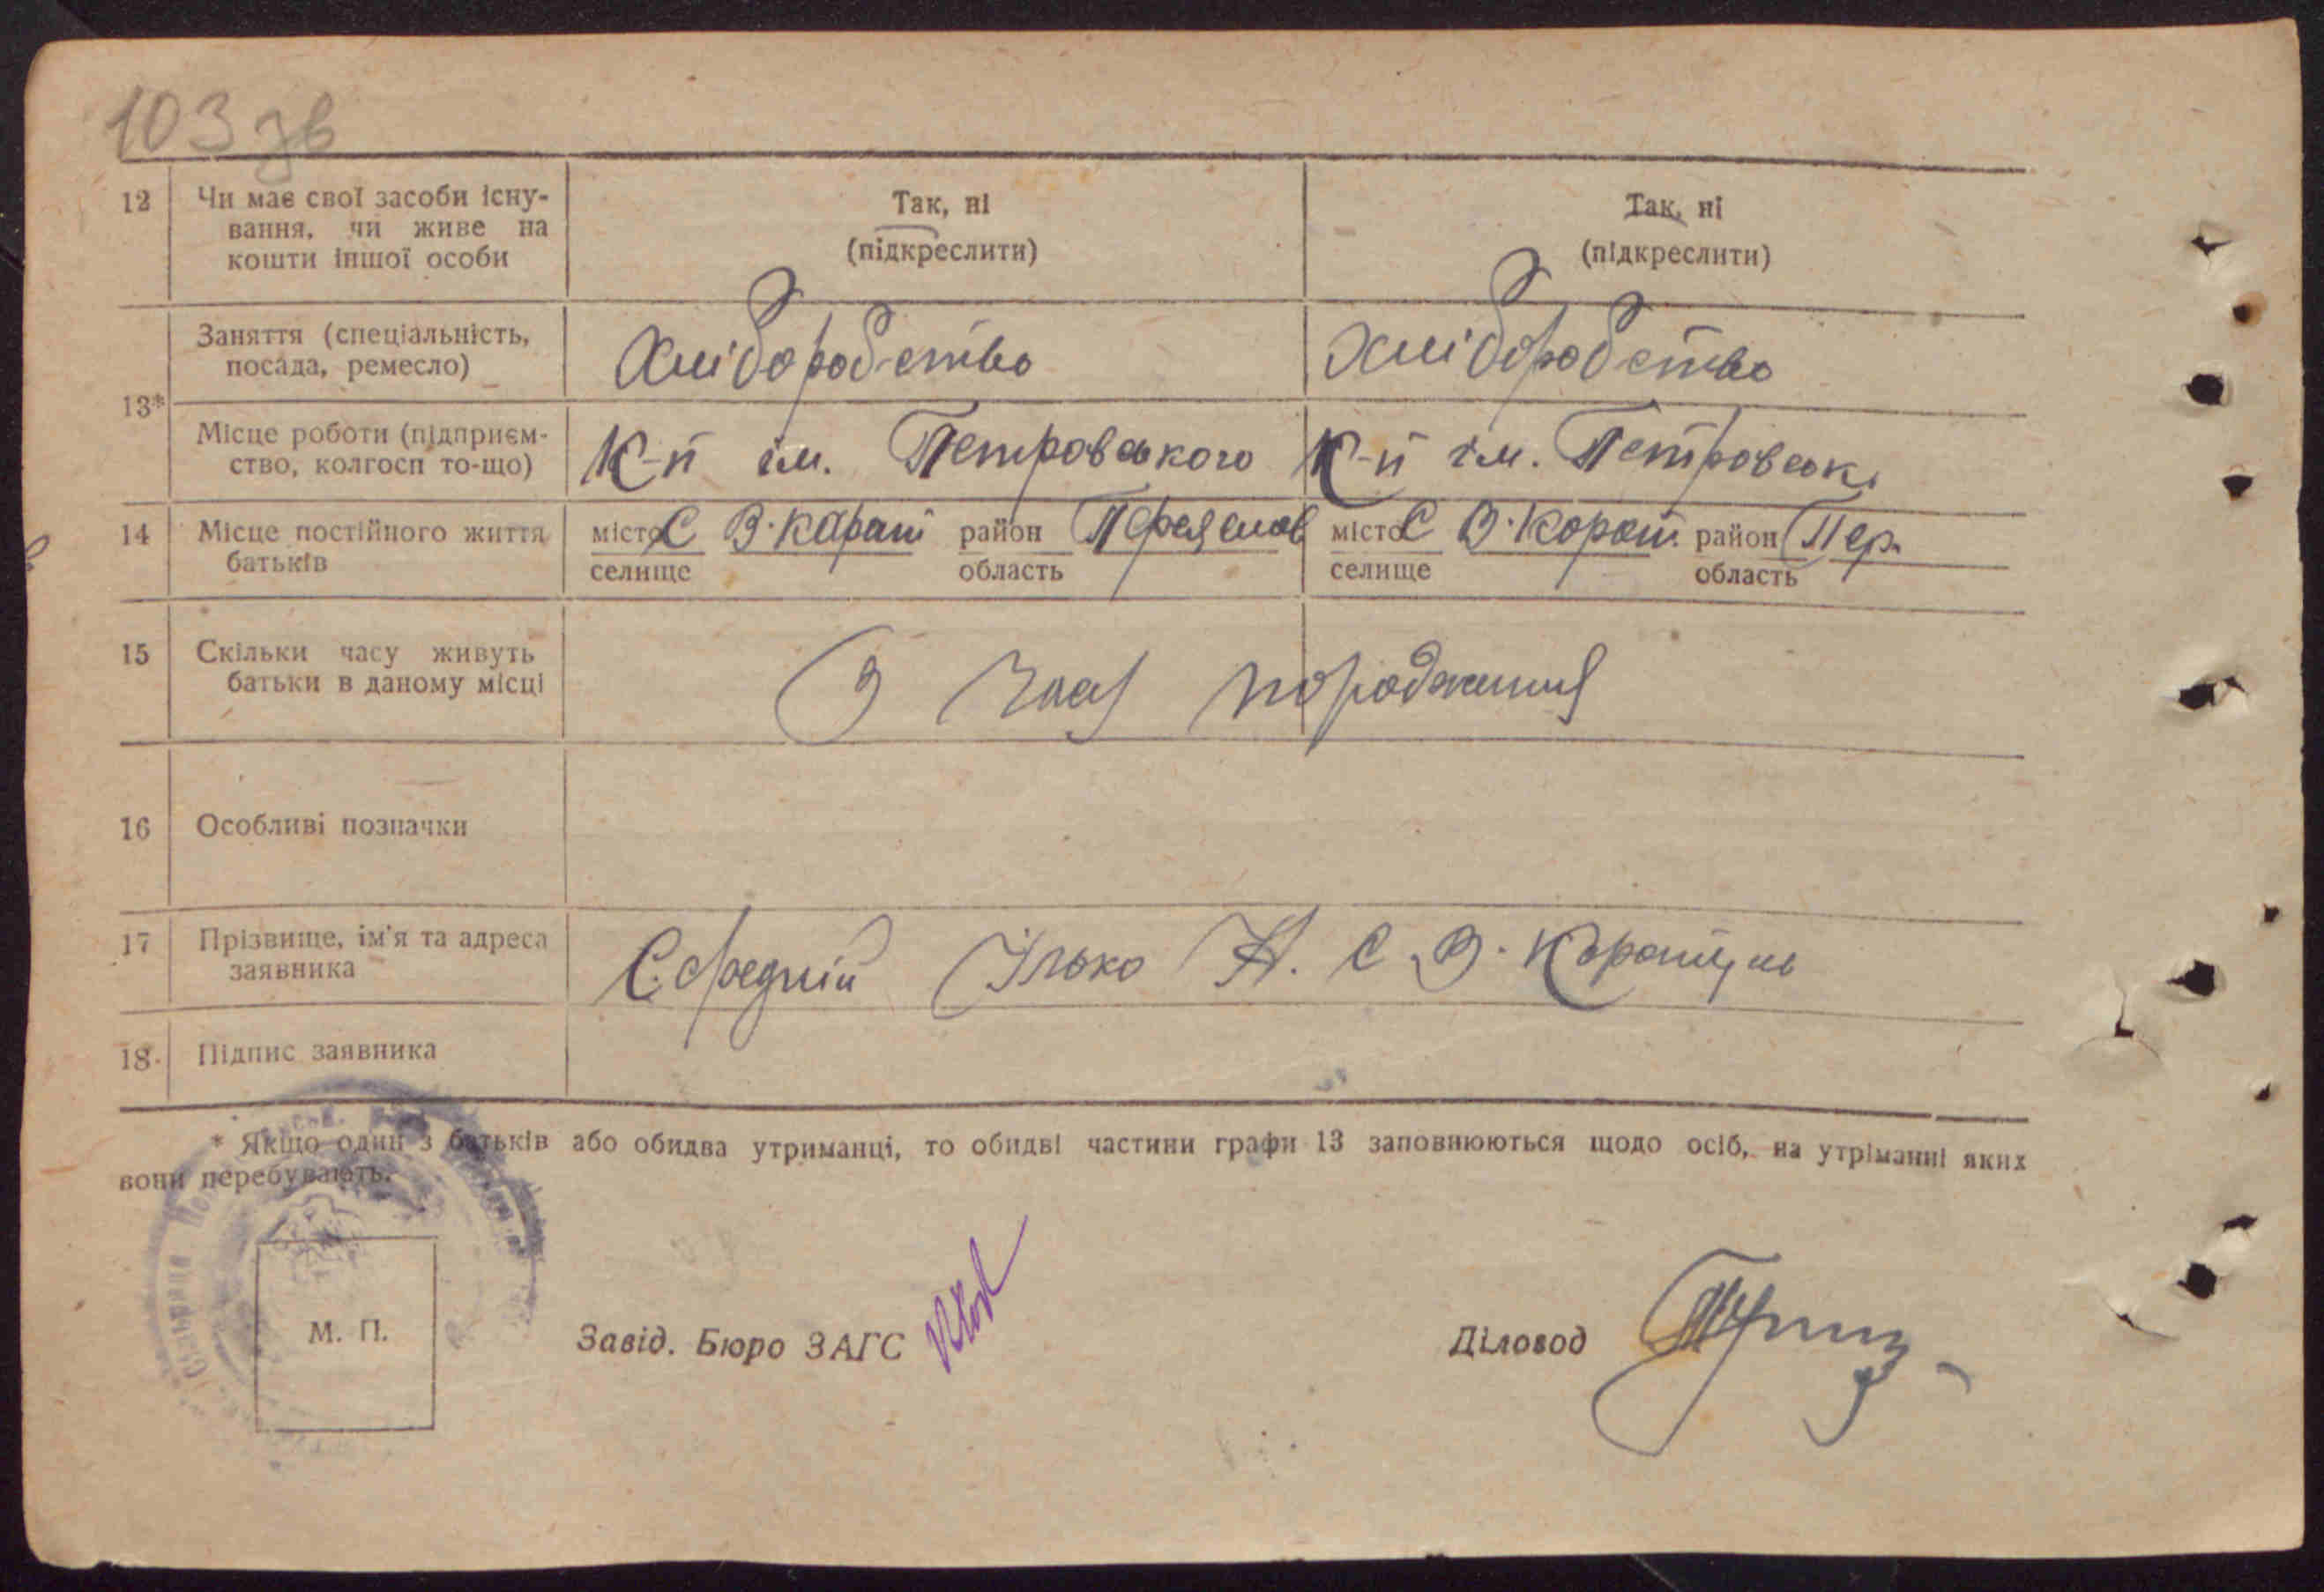 103 зв
12 Чи має свої засоби існу-
вання, чи живе на
кошти іншої особи
Так, ні
(підкреслити)
Так, ні
(підкреслити)
13*
Заняття (спеціальність,
посада, ремесло)
Хліборобство
Хліборобство
Місце роботи (підприєм-
ство, колгосп то-що)
К-п ім. Петровського
К-п ім. Петровськ.
14 Місце постійного життя
батьків
місто С В. Караш район Переяслов
селище область
місто С В. Корош. район Пер.
селище область
15 Скільки часу живуть
батьки в даному місці
З часу народження
16 Особливі позначки
17 Прізвище, ім'я та адреса
заявника
Середній Ілько Н. С. В.
18. Підпис заявника
* Якщо один з батьків або обидва утриманці, то обидві частини графи 13 заповнюються щодо осіб, на утріманні яких
вони перебувають.
М. П.
Завід. Бюро ЗАГС
Діловод